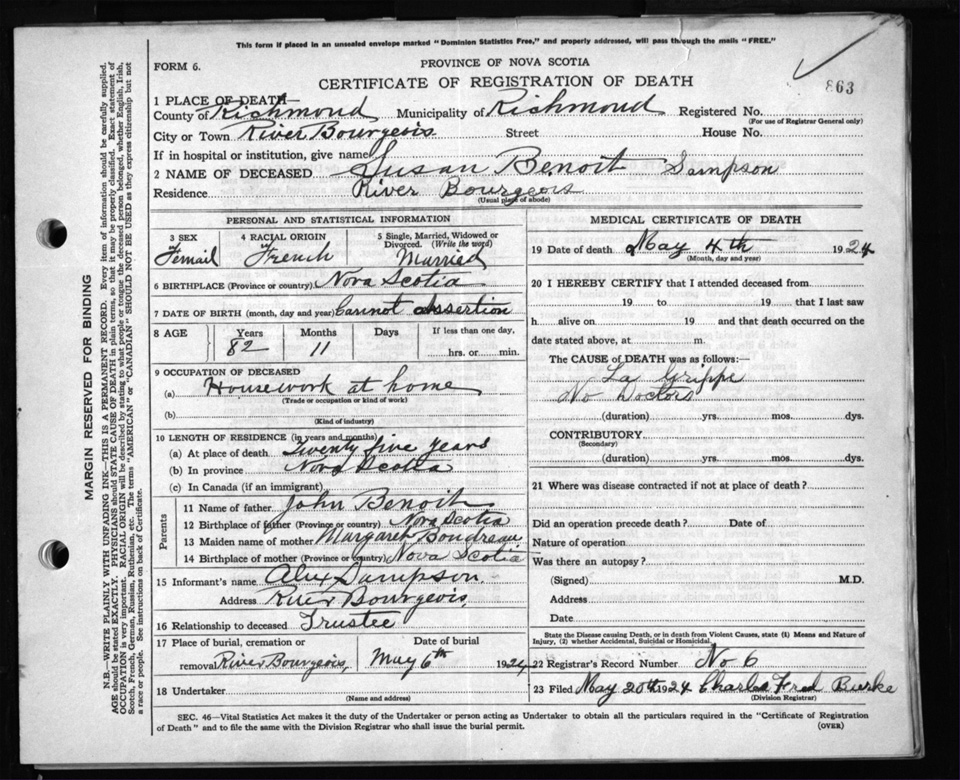 This form if placed in an unsealed envelope marked "Dominion Statistics Free," and properly addressed, will pass through the mails "FREE."
FORM 6.
PROVINCE OF NOVA SCOTIA
CERTIFICATE OF REGISTRATION OF DEATH
863
1 PLACE OF DEATH—
County of Richmond Municipality of Richmond Registered No.
(For use of Registrar General only)
City or Town River Bourgeois Street House No.
If in hospital or institution, give name
2 NAME OF DECEASED Susan Benoit Sampson
Residence River Bourgeois
(Usual place of abode)
PERSONAL AND STATISTICAL INFORMATION
3 SEX Femail
4 RACIAL ORIGIN French
5 Single, Married, Widowed or Divorced. (Write the word) Married
6 BIRTHPLACE (Province or country) Nova Scotia
7 DATE OF BIRTH (month, day and year) Cannot assertion
8 AGE Years Months Days If less than one day,
82 11 hrs. or min.
9 OCCUPATION OF DECEASED
(a) Housework at home
(Trade or occupation or kind of work)
(b)
(Kind of industry)
10 LENGTH OF RESIDENCE (in years and months)
(a) At place of death Twenty five years
(b) In province Nova Scotia
(c) In Canada (if an immigrant)
Parents
11 Name of father John Benoit
12 Birthplace of father (Province or country) Nova Scotia
13 Maiden name of mother Margaret Boudreau
14 Birthplace of mother (Province or country) Nova Scotia
15 Informant's name Alex Sampson
Address River Bourgeois
16 Relationship to deceased Trustee
17 Place of burial, cremation or removal River Bourgeois, Date of burial May 6th 1924
18 Undertaker
(Name and address)
MEDICAL CERTIFICATE OF DEATH
19 Date of death May 4th 1924
(Month, day and year)
20 I HEREBY CERTIFY that I attended deceased from
19 to 19 that I last saw
h alive on 19 and that death occurred on the
date stated above, at m.
The CAUSE of DEATH was as follows:—
La Grippe
No Doctors
(duration) yrs. mos. dys.
CONTRIBUTORY
(Secondary)
(duration) yrs. mos. dys.
21 Where was disease contracted if not at place of death?
Did an operation precede death? Date of
Nature of operation
Was there an autopsy?
(Signed) M.D.
Address
Date
State the Disease causing Death, or in death from Violent Causes, state (1) Means and Nature of
Injury, (2) whether Accidental, Suicidal or Homicidal.
22 Registrar's Record Number No 6
23 Filed May 20th 1924 Charles Fred Burke
(Division Registrar)
SEC. 46—Vital Statistics Act makes it the duty of the Undertaker or person acting as Undertaker to obtain all the particulars required in the "Certificate of Registration
of Death" and to file the same with the Division Registrar who shall issue the burial permit. (OVER)
MARGIN RESERVED FOR BINDING
N.B.—WRITE PLAINLY WITH UNFADING INK—THIS IS A PERMANENT RECORD. Every item of information should be carefully supplied.
AGE should be stated EXACTLY. PHYSICIANS should STATE CAUSE OF DEATH in plain terms, so that it may be properly classified. Exact statement of
OCCUPATION is very important. RACIAL ORIGIN will be described by stating to what people or tongue the deceased person belonged, whether English, Irish,
Scotch, French, German, Russian, Ruthenian, etc. The terms "AMERICAN" or "CANADIAN" SHOULD NOT BE USED as they express citizenship but not
a race or people. See instructions on back of Certificate.